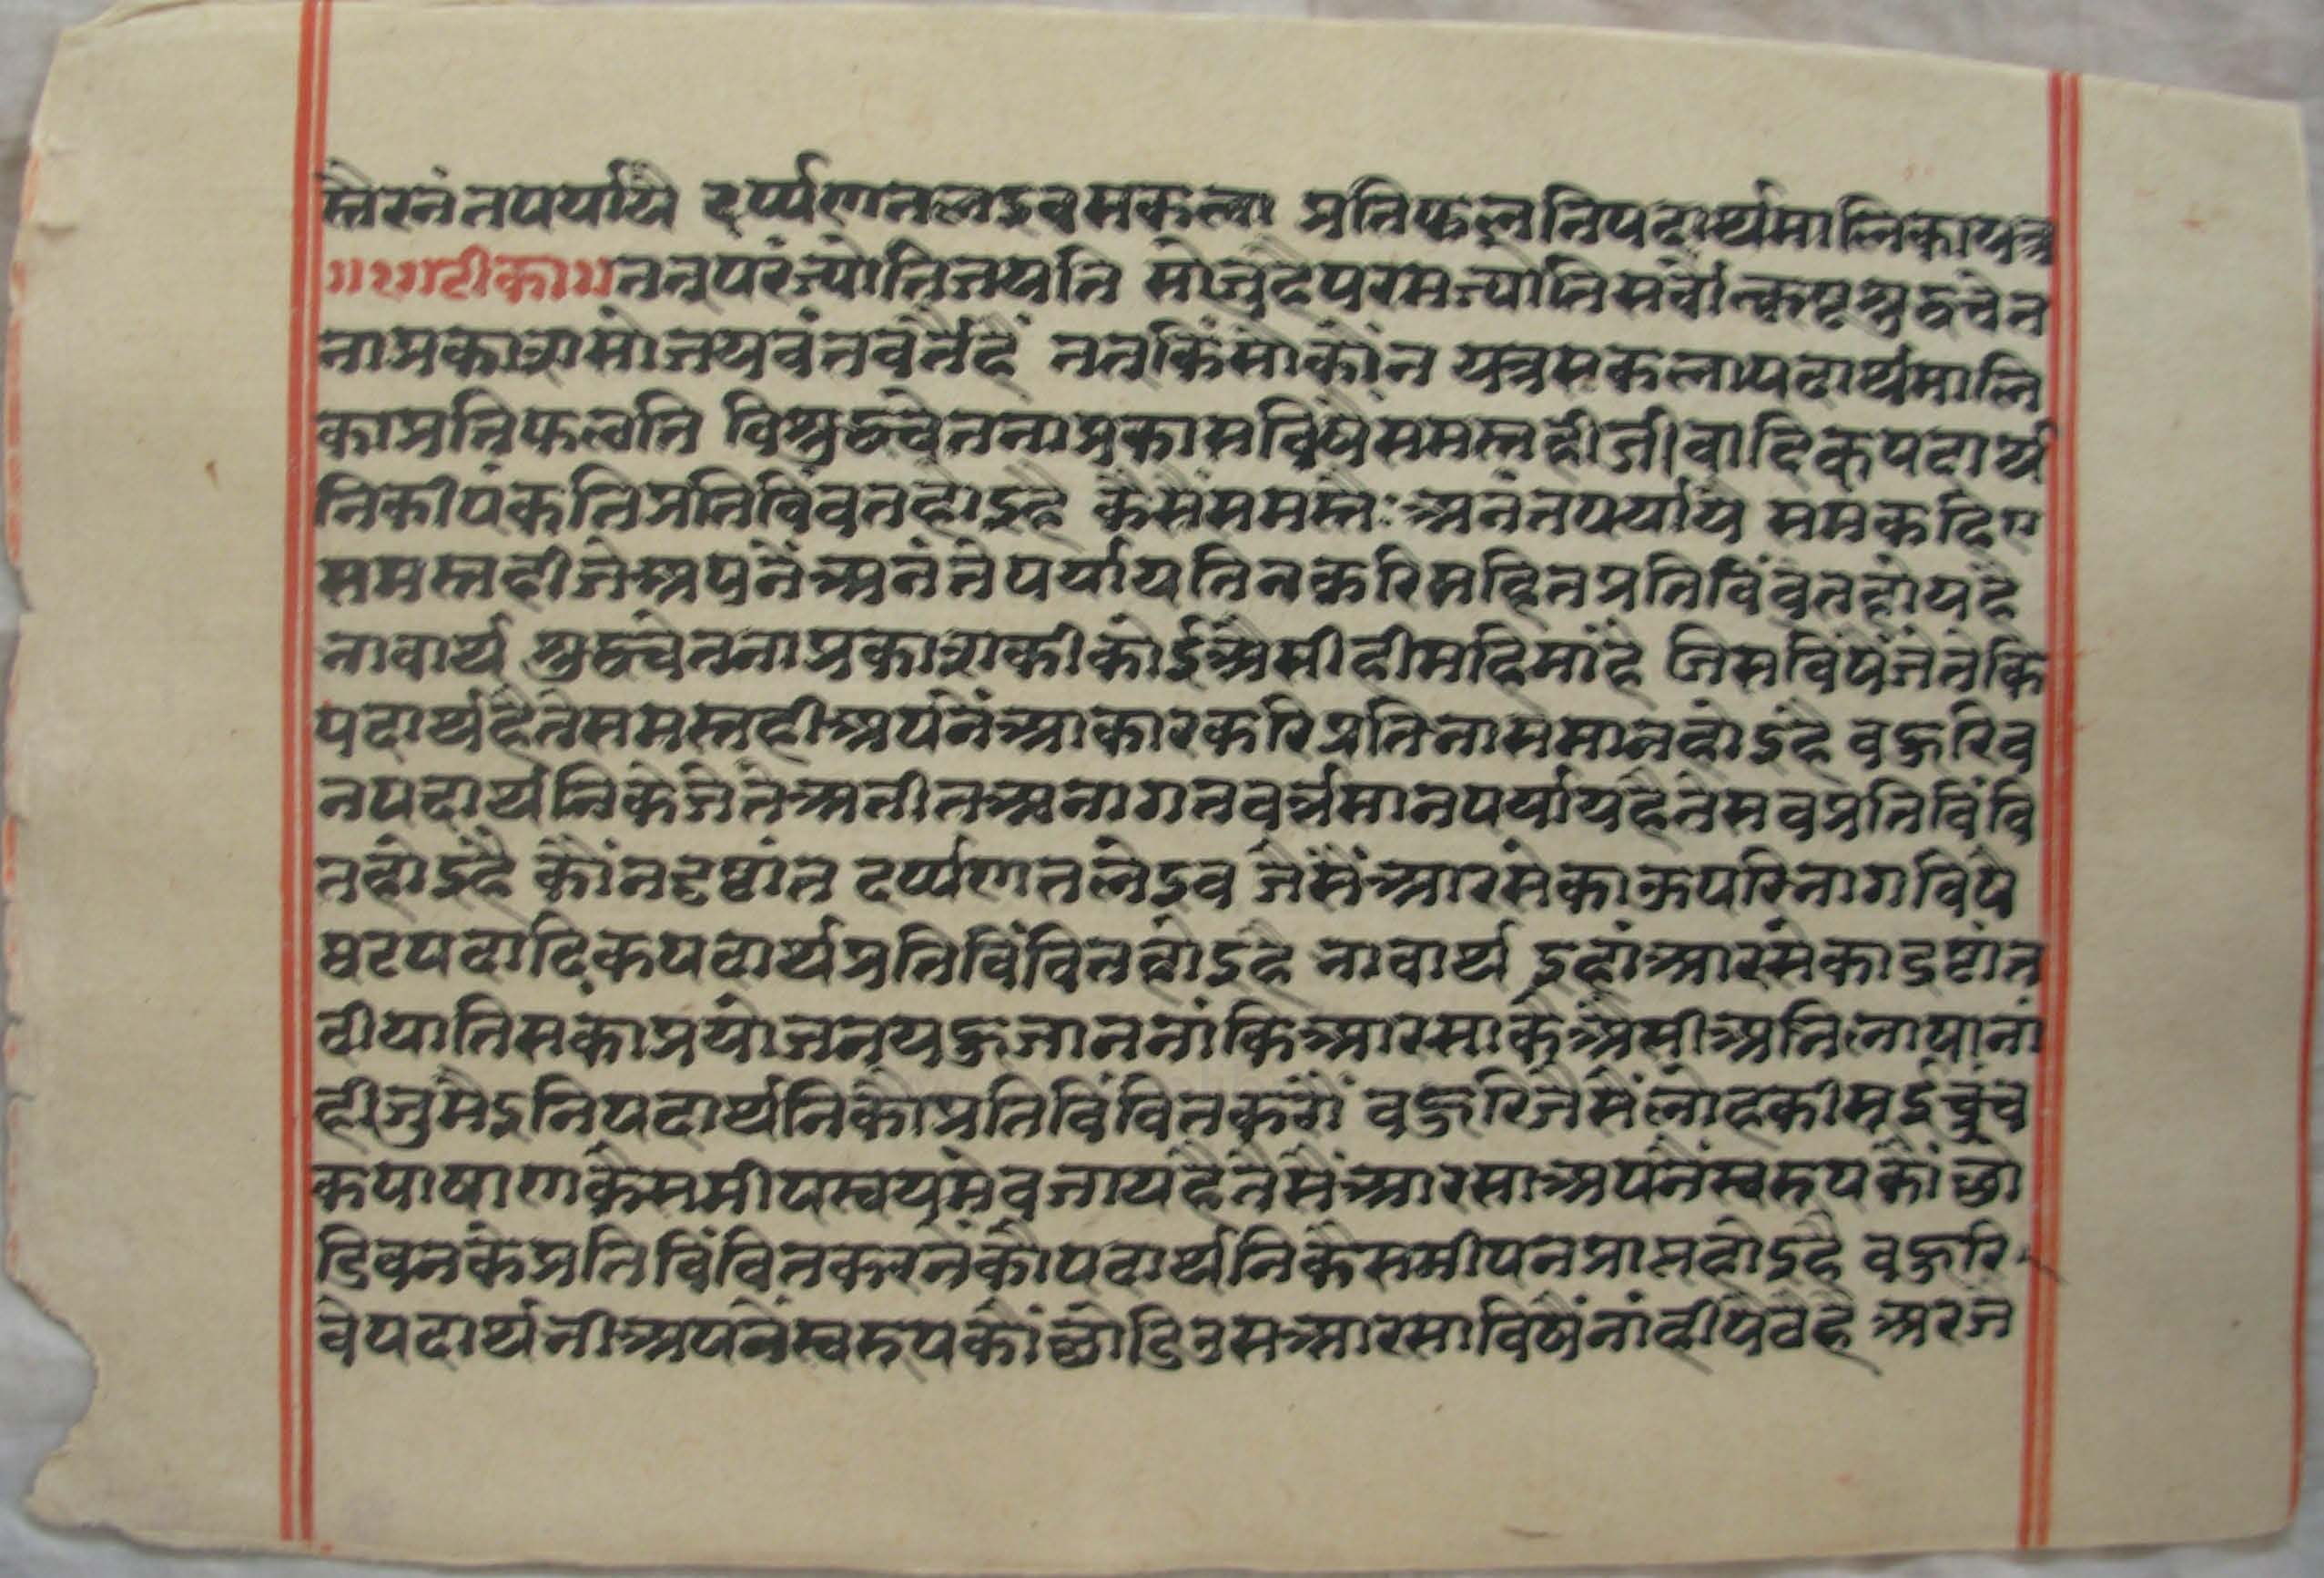 स्तैरनंतपर्यायै दर्प्पणतलइवसकला प्रतिफलतिपदार्थमालिकायत्र
॥१॥टीका॥ततुपरंज्योतिजयति सोजुहैपरमज्योतिसर्वोत्कृष्टशुद्धचेत
नाप्रकाशसोजयवंतवर्तेहै ततकिंसोकोंन यत्रसकलापदार्थमालि
काप्रतिफलति विशुद्धचेतनाप्रकासविषेंसमस्तहीजीवादिकपदार्थ
निकीपंकतिप्रतिविंवतहोइहै कैसेंसमस्तैःअनंतपर्यायै समकहिए
समस्तहीजेअपनेंअनंतेपर्यायतिनकरिसहितप्रतिविंवतहोयहै
भावार्थ शुद्धचेतनाप्रकाशकीकोईअैसीहीमहिमांहै जिसविषेंजेतेकि
पदार्थहैतेसमस्तहीअपनेंआकारकरिप्रतिभासमानहोइहै वहुरिव
नपदार्थनिकेजेतेअतीतअनागतवर्त्तमानपर्यायहैतेसवप्रतिविंवि
तहोइहै कौंनदृष्टांत दर्प्पणतलेइव जैसेंआरसेकाऊपरिभागविषे
घटपटादिकपदार्थप्रतिविंवितहोइहै भावार्थ इहांआरसेकादृष्टांत
दीयातिसकाप्रयोजनयहुजाननांकिआरसाकेअैसीअभिलाषानां
हीजुमैइनिपदार्थनिकौप्रतिविंवितकरौं वहुरिजैसेंलोहकीसुईचुंव
कपाषाणकेसमीपस्वयमेवजायहैतैसेंआरसाअपनेंस्वरूपकौंछो
डिवनकेप्रतिविंवितकरनेंकौपदार्थनिकेसमीपनप्राप्तहोइहै वहुरि
वेपदार्थभीअपनेंस्वरूपकौंछोडिउसआरसाविषेंनांहीपेंवेहै अरजे